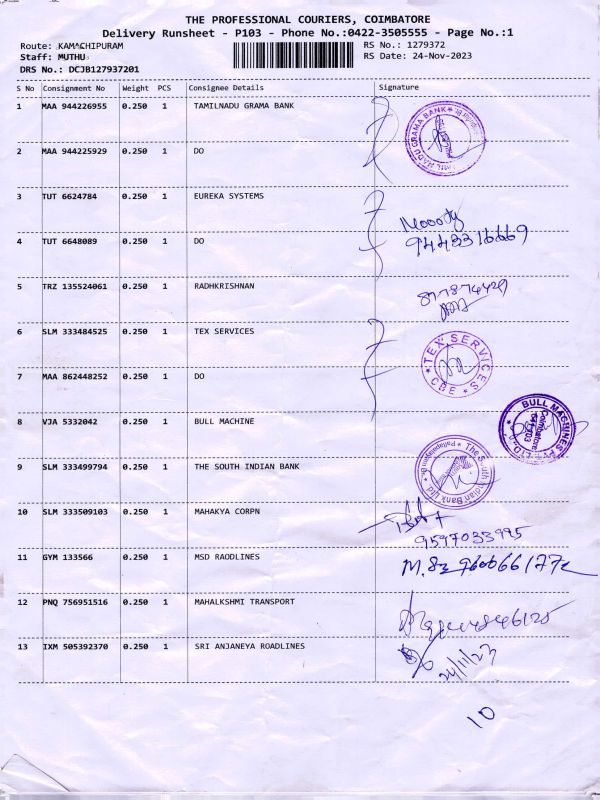 THE PROFESSIONAL COURIERS, COIMBATORE
Delivery Runsheet - P103 - Phone No.:0422-3505555 - Page No.:1
Route: KAMACHIPURAM RS No.: 1279372
Staff: MUTHU RS Date: 24-Nov-2023
DRS No.: DCJB127937201
S No Consignment No Weight PCS Consignee Details Signature
1 MAA 944226955 0.250 1 TAMILNADU GRAMA BANK
2 MAA 944225929 0.250 1 DO
3 TUT 6624784 0.250 1 EUREKA SYSTEMS
Mooorty
4 TUT 6648089 0.250 1 DO 9443316669
5 TRZ 135524061 0.250 1 RADHKRISHNAN
6 SLM 333484525 0.250 1 TEX SERVICES
TEX SERVICES
CBE
7 MAA 862448252 0.250 1 DO
8 VJA 5332042 0.250 1 BULL MACHINE
BULL MACHINES
Coimbatore
641 103
9 SLM 333499794 0.250 1 THE SOUTH INDIAN BANK
The South Indian Bank Ltd.
10 SLM 333509103 0.250 1 MAHAKYA CORPN
9597033995
11 GYM 133566 0.250 1 MSD RAODLINES
12 PNQ 756951516 0.250 1 MAHALKSHMI TRANSPORT
13 IXM 505392370 0.250 1 SRI ANJANEYA ROADLINES
24/11/23
10